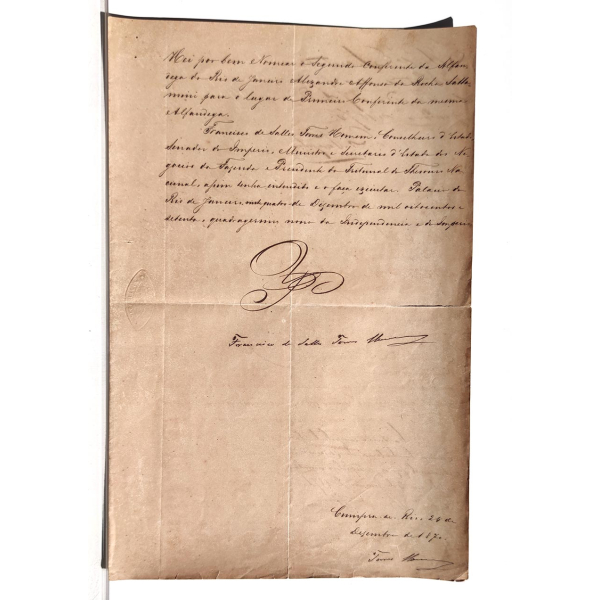 Hei por bem Nomear o Segundo Conferente da Alfan
dega do Rio de Janeiro Alexandre Affonso da Rocha Satta
mini para o lugar de Primeiro Conferente da mesma
Alfandega.
Francisco de Salles Torres Homem, Conselheiro d'Estado,
Senador do Imperio, Ministro e Secretario d'Estado dos Ne
gocios da Fazenda e Presidente do Tribunal do Thesouro Na
cional, assim tenha entendido e o faça executar. Palacio do
Rio de Janeiro, vinte quatro de Dezembro de mil oitocentos e
setenta, quadragesimo nono da Independencia e do Imperio.
Francisco de Salles Torres Homem
Cumpra-se. Rio, 24 de
Dezembro de 1870.
Torres Homem